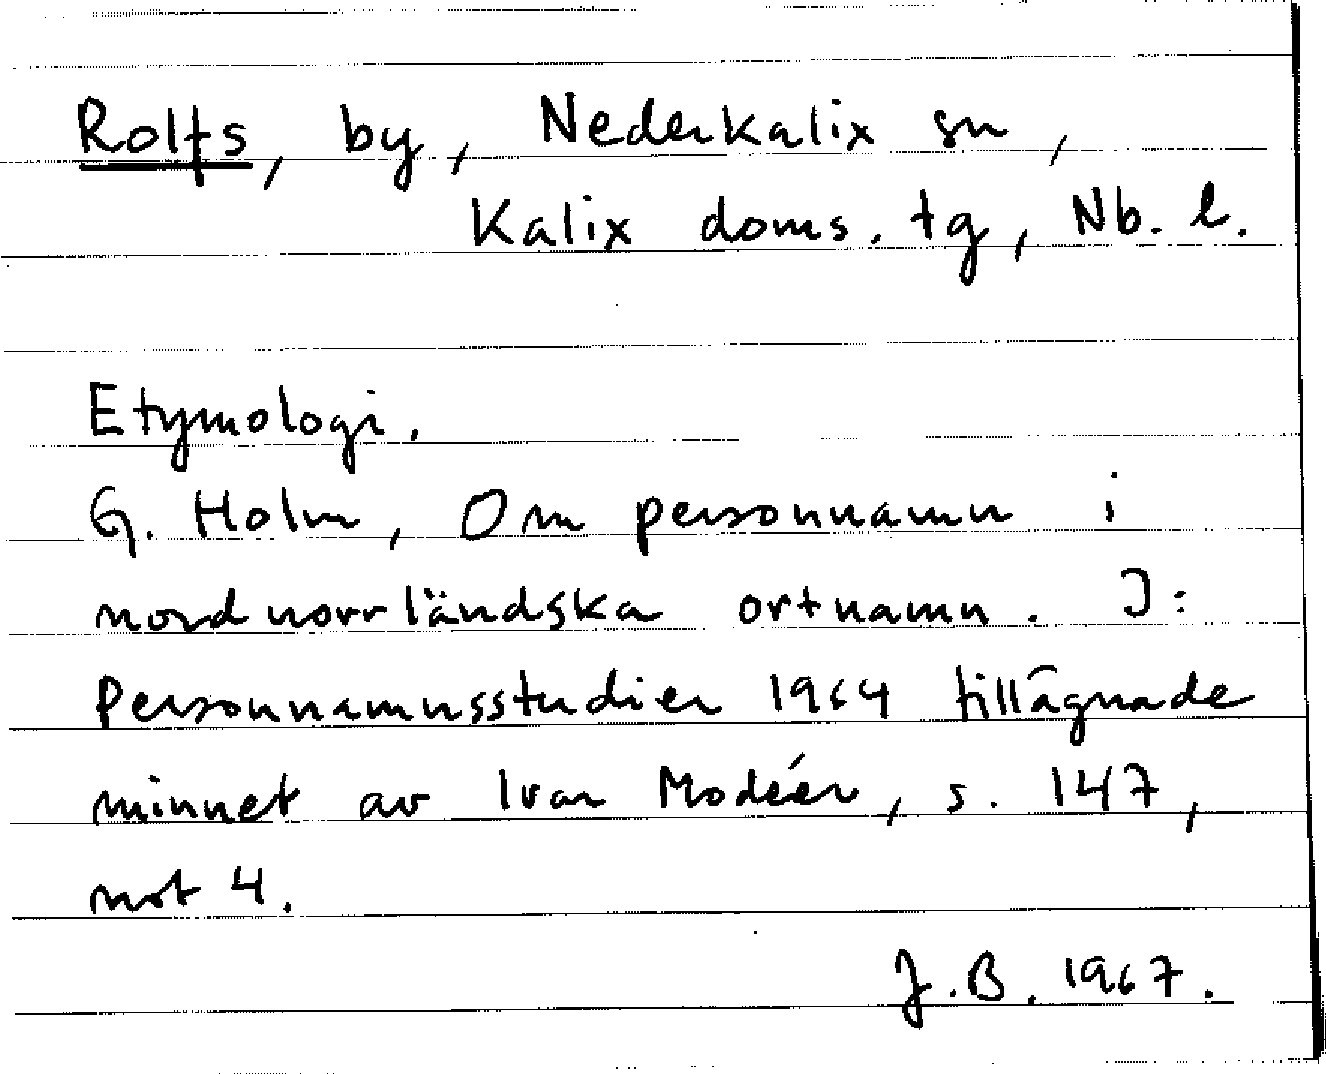 Rolfs, by, Nederkalix sn,
Kalix doms. tg, Nb. l.
Etymologi.
G. Holm, Om personnamn i
nordnorrländska ortnamn. I:
Personnamnsstudier 1964 tillägnade
minnet av Ivar Modéer, s. 147,
not 4.
J.B. 1967.